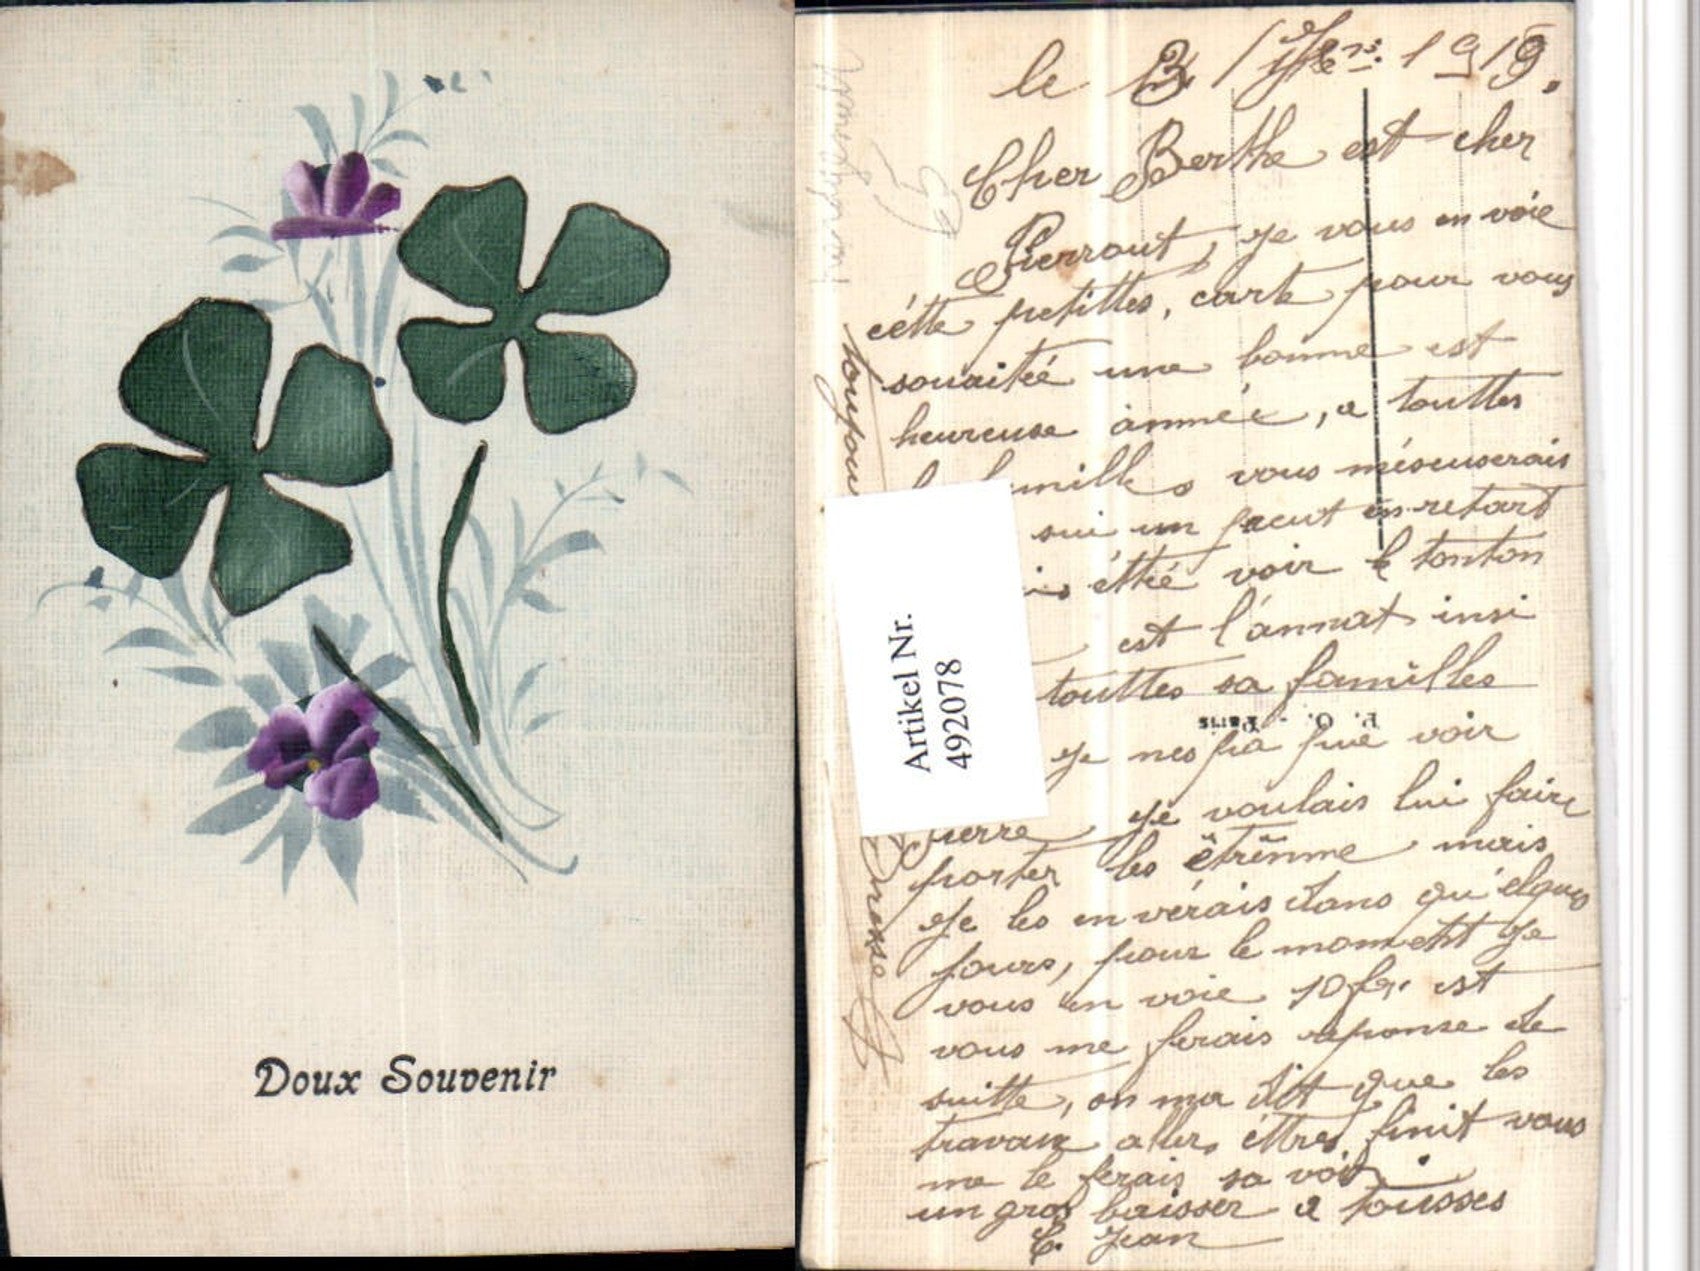 Doux Souvenir
le 3 1919.
Cher Berthe est cher
Pierrout, je vous en voie
cétte petittes, carte pour vous
souaitée une bonne est
heureuse année, a touttes
vous méscuserais
sui un peut en retart
éttié voir le tonton
est l'annat insi
touttes sa familles
P. O. - Paris
je nes pa pue voir
Pierre je voulais lui faire
porter les êtrênne mais
je les en vérais dans qu'elques
jours, pour le moment je
vous en voie 10 fr. est
vous me ferais reponse de
suitte, on ma dit que les
travaux aller, éttres finit vous
me le ferais sa voir.
un gros baisser a tousses
C. Jean
toujou
Artikel Nr.
492078